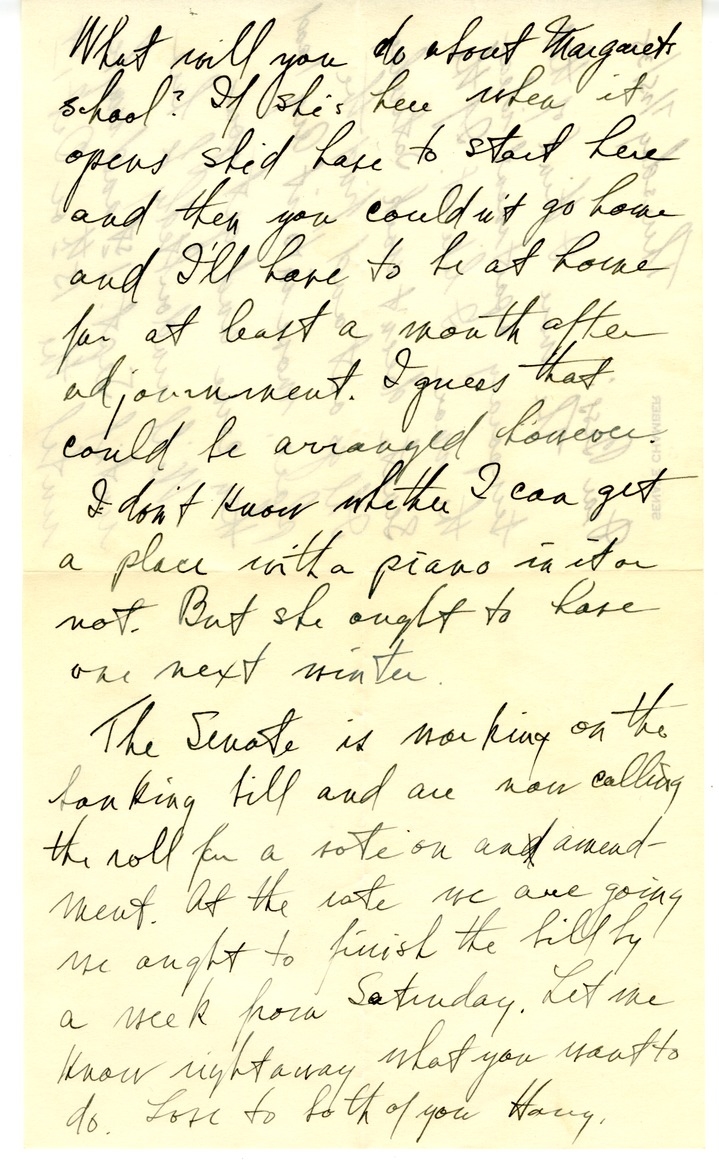 What will you do about Margarets
school? If she's here when it
opens she'd have to start here
and then you couldn't go home
and I'll have to be at home
for at least a month after
adjournment. I guess that
could be arranged however.
I don't know whether I can get
a place with a piano in it or
not. But she ought to have
one next winter.
The Senate is working on the
banking bill and are now calling
the roll for a vote on and amend-
ment. At the rate we are going
we ought to finish the bill by
a week from Saturday. Let me
know right away what you want to
do. Love to both of you Harry.
SENATE CHAMBER